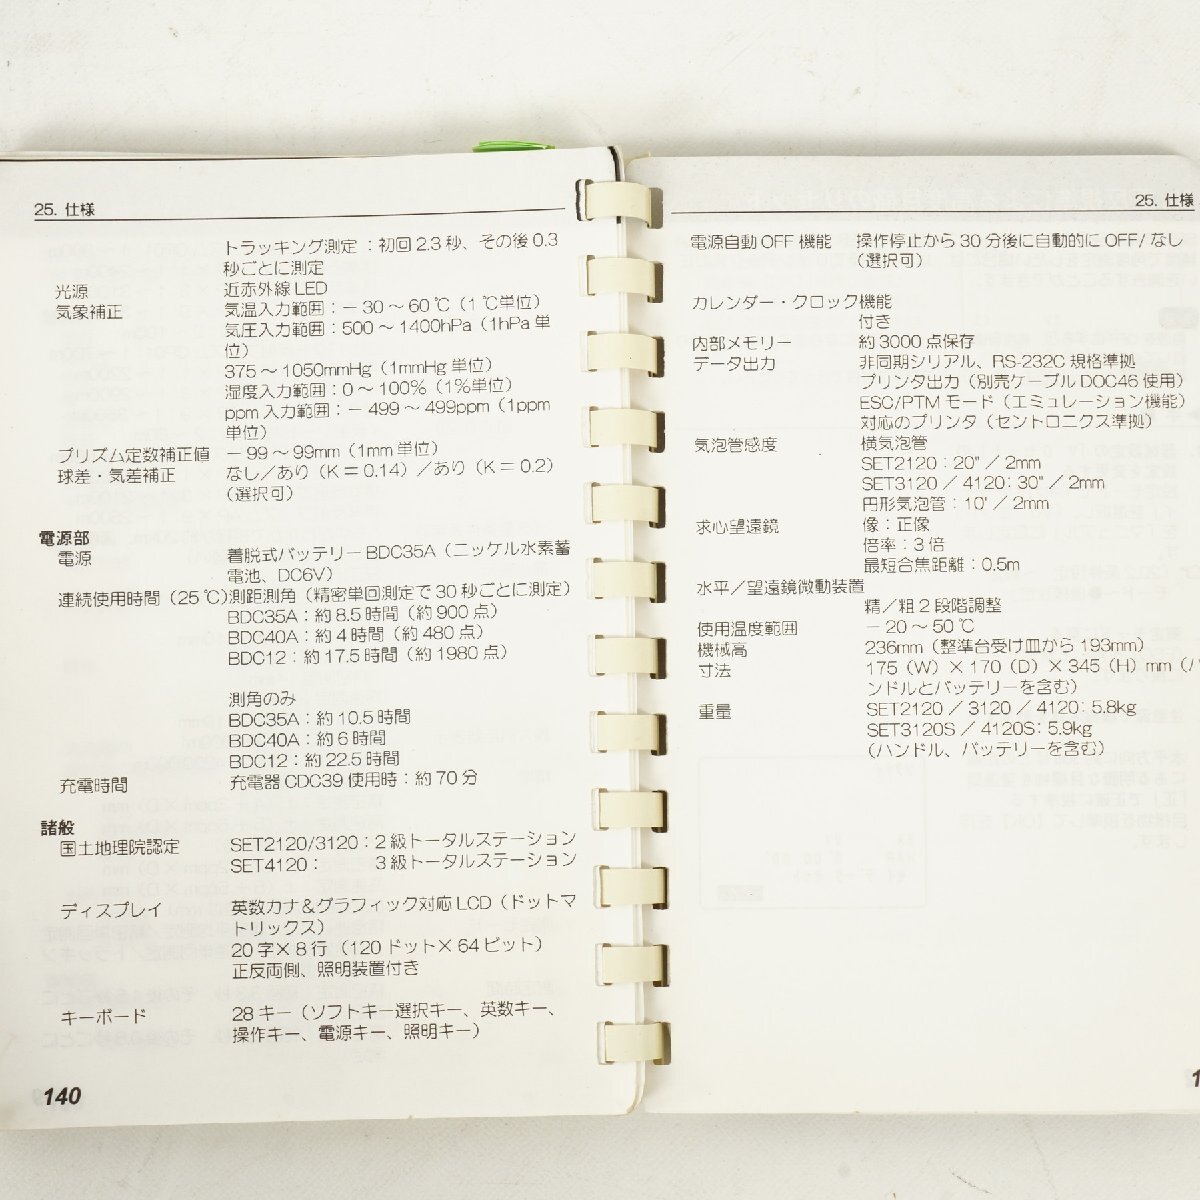 25. 仕様
トラッキング測定：初回 2.3 秒、その後 0.3
秒ごとに測定
光源 近赤外線 LED
気象補正 気温入力範囲：－ 30 ～ 60 ℃（1 ℃単位）
気圧入力範囲：500 ～ 1400hPa（1hPa 単
位）
375 ～ 1050mmHg（1mmHg 単位）
湿度入力範囲：0 ～ 100%（1%単位）
ppm 入力範囲：－ 499 ～ 499ppm（1ppm
単位）
プリズム定数補正値 － 99 ～ 99mm（1mm 単位）
球差・気差補正 なし／あり（K ＝ 0.14）／あり（K ＝ 0.2）
（選択可）
電源部
電源 着脱式バッテリー BDC35A（ニッケル水素蓄
電池、DC6V）
連続使用時間（25 ℃）測距測角（精密単回測定で 30 秒ごとに測定）
BDC35A：約 8.5 時間（約 900 点）
BDC40A：約 4 時間（約 480 点）
BDC12：約 17.5 時間（約 1980 点）
測角のみ
BDC35A：約 10.5 時間
BDC40A：約 6 時間
BDC12：約 22.5 時間
充電時間 充電器 CDC39 使用時：約 70 分
諸般
国土地理院認定 SET2120/3120：2 級トータルステーション
SET4120： 3 級トータルステーション
ディスプレイ 英数カナ＆グラフィック対応 LCD（ドットマ
トリックス）
20 字× 8 行 （120 ドット× 64 ビット）
正反両側、照明装置付き
キーボード 28 キー（ソフトキー選択キー、英数キー、
操作キー、電源キー、照明キー）
140
25. 仕様
電源自動 OFF 機能 操作停止から 30 分後に自動的に OFF/ なし
（選択可）
カレンダー・クロック機能
付き
内部メモリー 約 3000 点保存
データ出力 非同期シリアル、RS-232C 規格準拠
プリンタ出力（別売ケーブル DOC46 使用）
ESC/PTM モード（エミュレーション機能）
対応のプリンタ（セントロニクス準拠）
気泡管感度 横気泡管
SET2120：20" ／ 2mm
SET3120 ／ 4120：30" ／ 2mm
円形気泡管：10' ／ 2mm
求心望遠鏡 像：正像
倍率：3 倍
最短合焦距離：0.5m
水平／望遠鏡微動装置
精／粗 2 段階調整
使用温度範囲 － 20 ～ 50 ℃
機械高 236mm（整準台受け皿から 193mm）
寸法 175（W）× 170（D）× 345（H）mm（ハ
ンドルとバッテリーを含む）
重量 SET2120 ／ 3120 ／ 4120：5.8kg
SET3120S ／ 4120S：5.9kg
（ハンドル、バッテリーを含む）